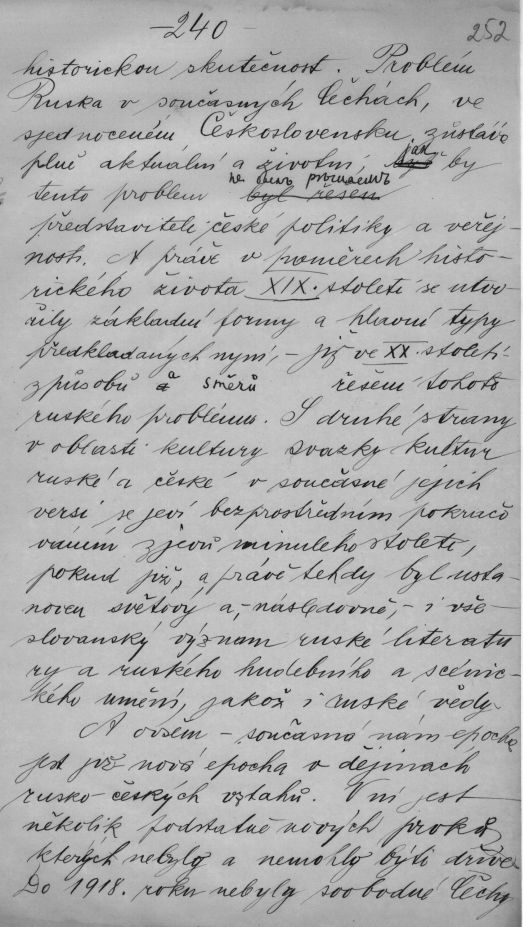 -240-
252
historickou skutečnost. Problém
Ruska v současných Čechách, ve
sjednoceném Československu zůstává
plně aktuální a životní, by
tento problem byl řešen
představiteli české politiky a veřej-
nosti. A právě v poměrech histo-
rického života XIX. století se utvo-
řily základní formy a hlavní typy
předkladaných nyní, - již ve XX. století
způsobů a směrů řešení tohoto
ruského problému. S druhé strany
v oblasti kultury svazky kultur
ruské a české v současné jejich
versi se jeví bezprostředním pokračo
váním zjevů minulého století,
pokud již, a právě tehdy byl usta-
noven světový a, - následovně, - i vše-
slovanský význam ruské literatu
ry a ruského hudebního a scénic-
kého umění, jakož i ruské vědy.
A ovšem - současná nám epocha
jest již nová epocha v dějinách
rusko-českých vztahů. V ní jest
několik podstatně nových prvků,
kterých nebylo a nemohlo býti dříve.
Do 1918. roku nebyly svobodné Čechy